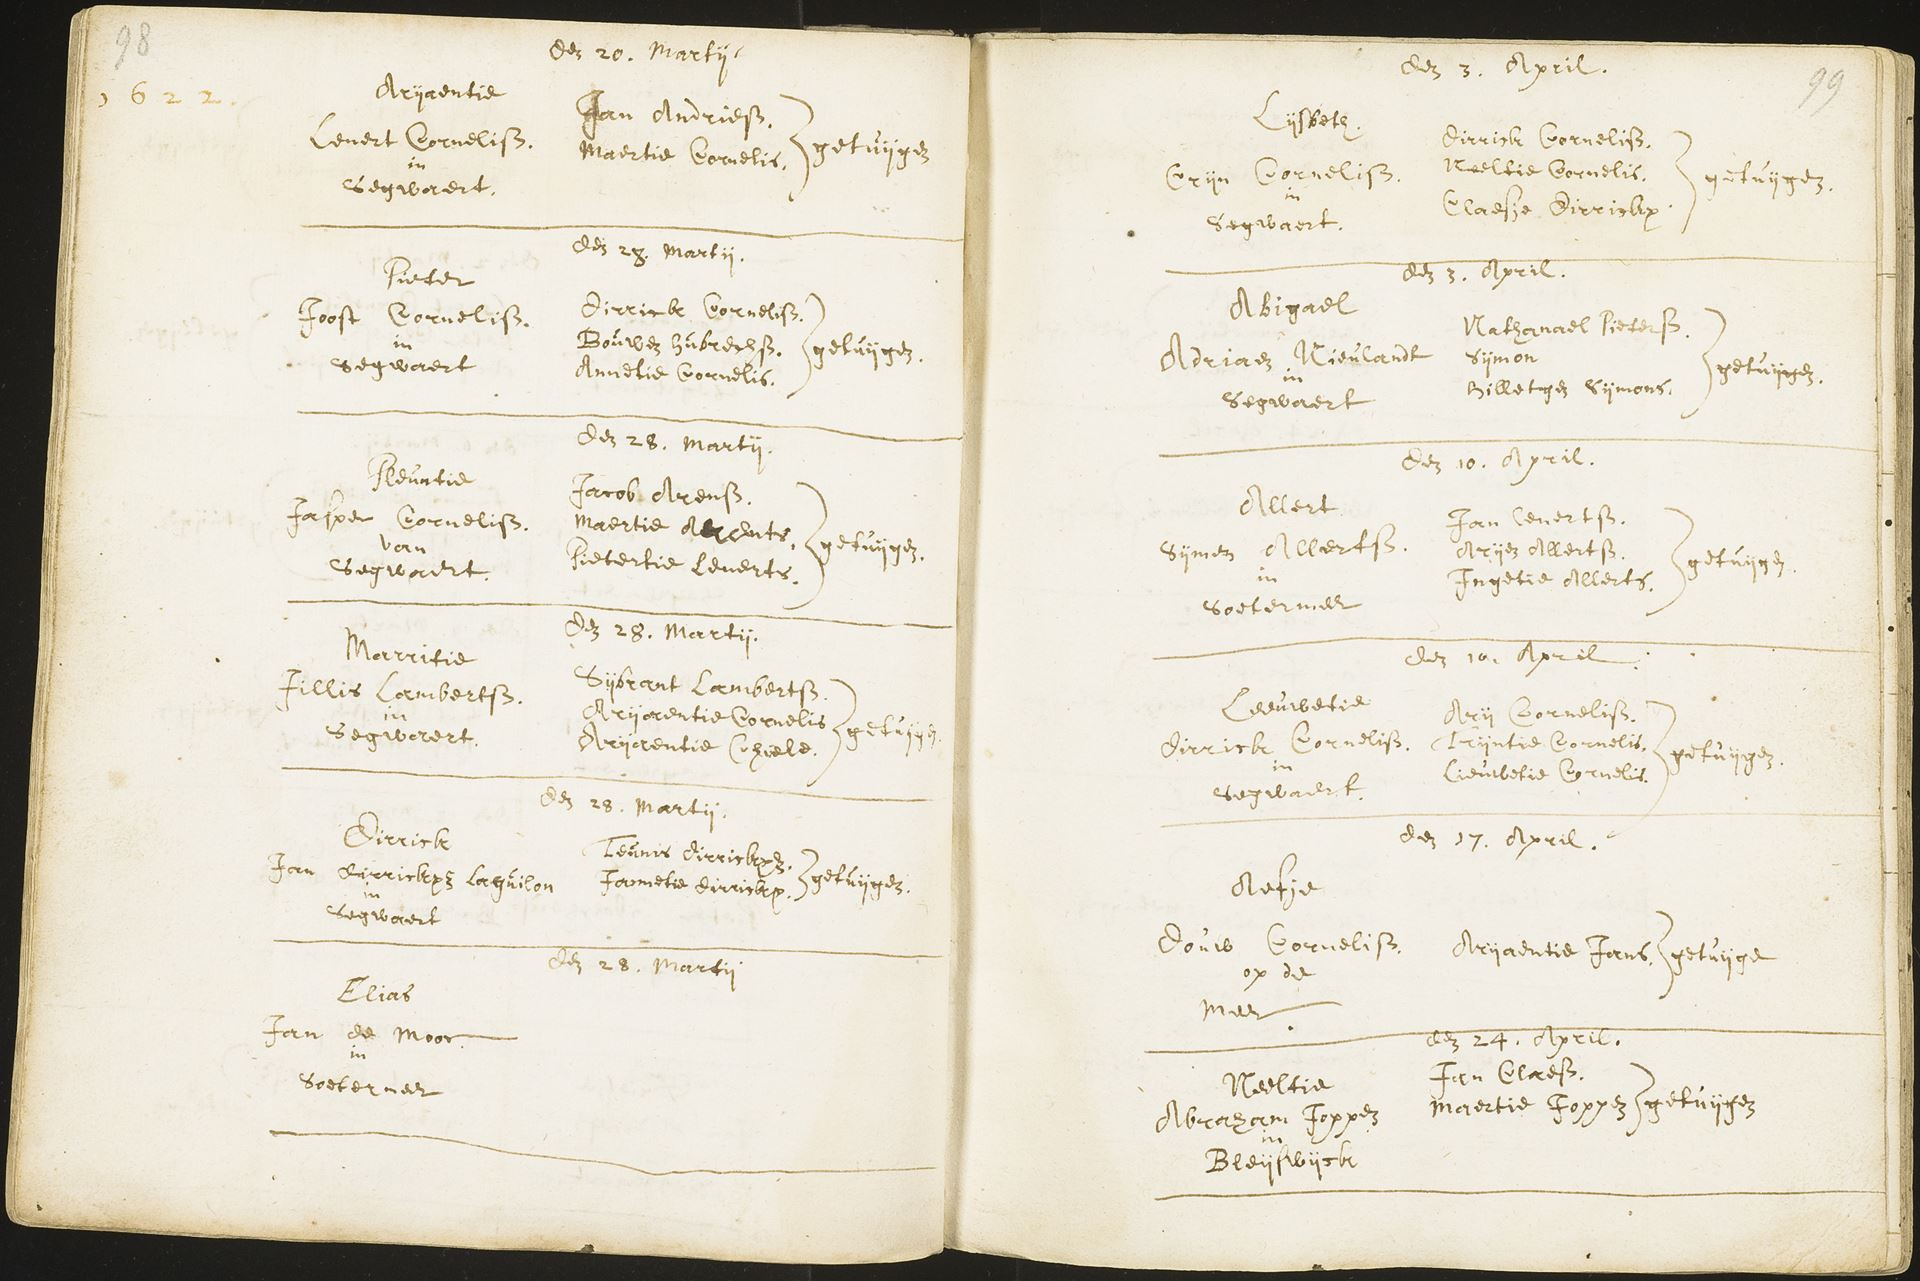 98
1622.
den 20. Martij
Arijaentie
Lenert Corneliss.
in
Segwaert.
Jan Andriess.
Maertie Cornelis.
getuijgen
den 28. Martij.
Pieter
Joost Corneliss.
in
Segwaert
Dirrick Corneliss.
Bouwen Hubrechss.
Annetie Cornelis.
getuijgen.
den 28. Martij.
Pleuntie
Jasper Corneliss.
van
Segwaert.
Jacob Arenss.
Maertie
Pietertie Lenerts.
getuijgen.
den 28. Martij.
Marritie
Jillis Lambertss.
in
Segwaert.
Sijbrant Lambertss.
Arijaentie Cornelis
Arijaentie Cheele.
getuijgen.
den 28. Martij.
Dirrick
Jan Dirrickxz Laquilon
in
Segwaert
Teunis Dirrickxz.
Jannetie Dirrickx.
getuijgen.
den 28. Martij
Elias
Jan de Moor.
in
Soetermeer
99
den 3. April.
Lijsbeth.
Crijn Corneliss.
in
Segwaert.
Dirrick Corneliss.
Neeltie Cornelis.
Claesje Dirrickx.
getuijgen.
den 3. April.
Abigael
Adriaen Nieulandt
in
Segwaert
Nathanael Pieterss.
Sijmon
Billetgen Sijmons.
getuijgen.
den 10. April.
Allert
Sijmen Allertss.
in
Soetermeer
Jan Lenertss.
Arijen Allertss.
Ingetie Allerts.
getuijgen.
den 10. April.
Leeuwetie
Dirrick Corneliss.
in
Segwaert.
Arij Corneliss.
Trijntie Cornelis.
Lieuwetie Cornelis.
getuijgen.
den 17. April.
Aefje
Douw Corneliss.
op de
Meer
Arijaentie Jans.
getuijge
den 24. April.
Neeltie
Abraham Joppen
in
Bleijswijck
Jan Claess.
Maertie Joppen
getuijgen